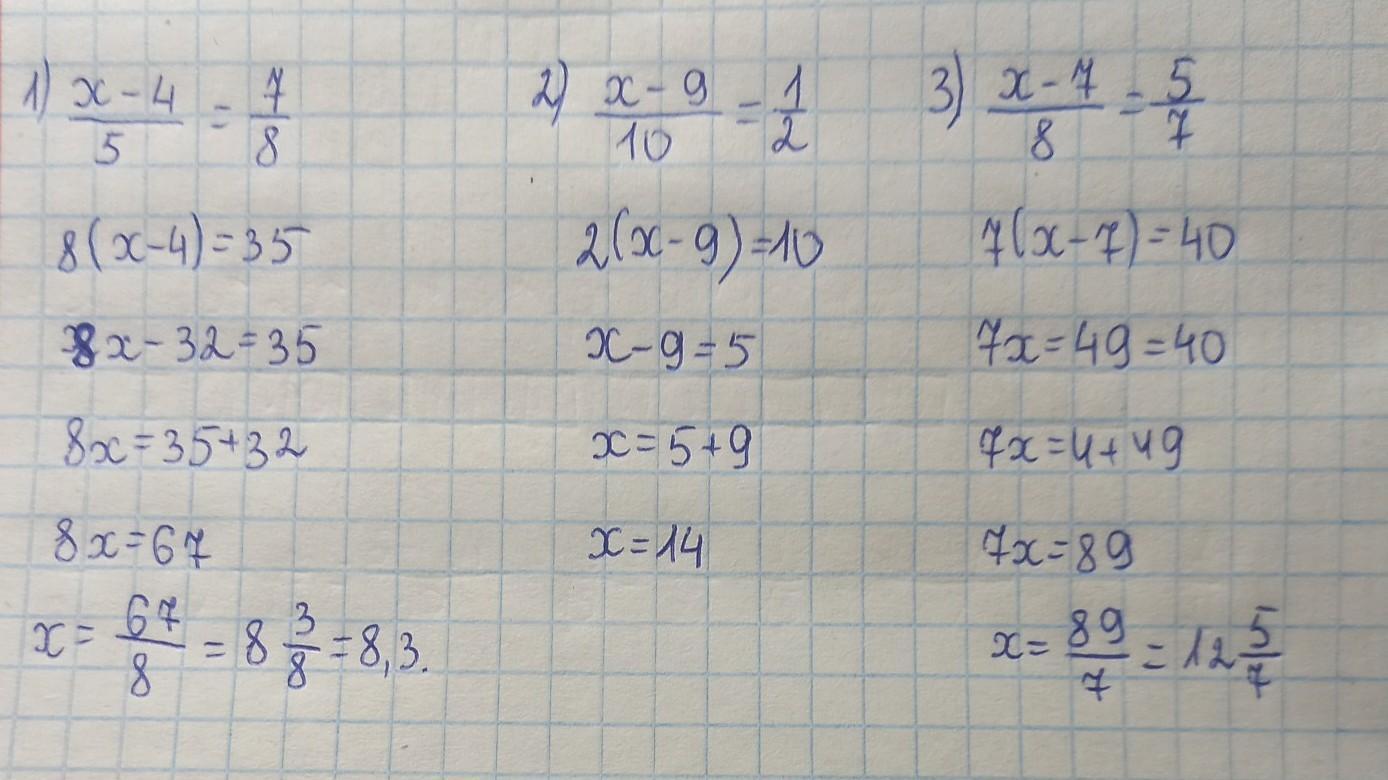 1) (x-4)/5 = 7/8
8(x-4)=35
8x-32=35
8x=35+32
8x=67
x= 67/8 = 8 3/8 = 8,3.
2) (x-9)/10 = 1/2
2(x-9)=10
x-9=5
x=5+9
x=14
3) (x-7)/8 = 5/7
7(x-7)=40
7x=49=40
7x=4+49
7x=89
x= 89/7 = 12 5/7